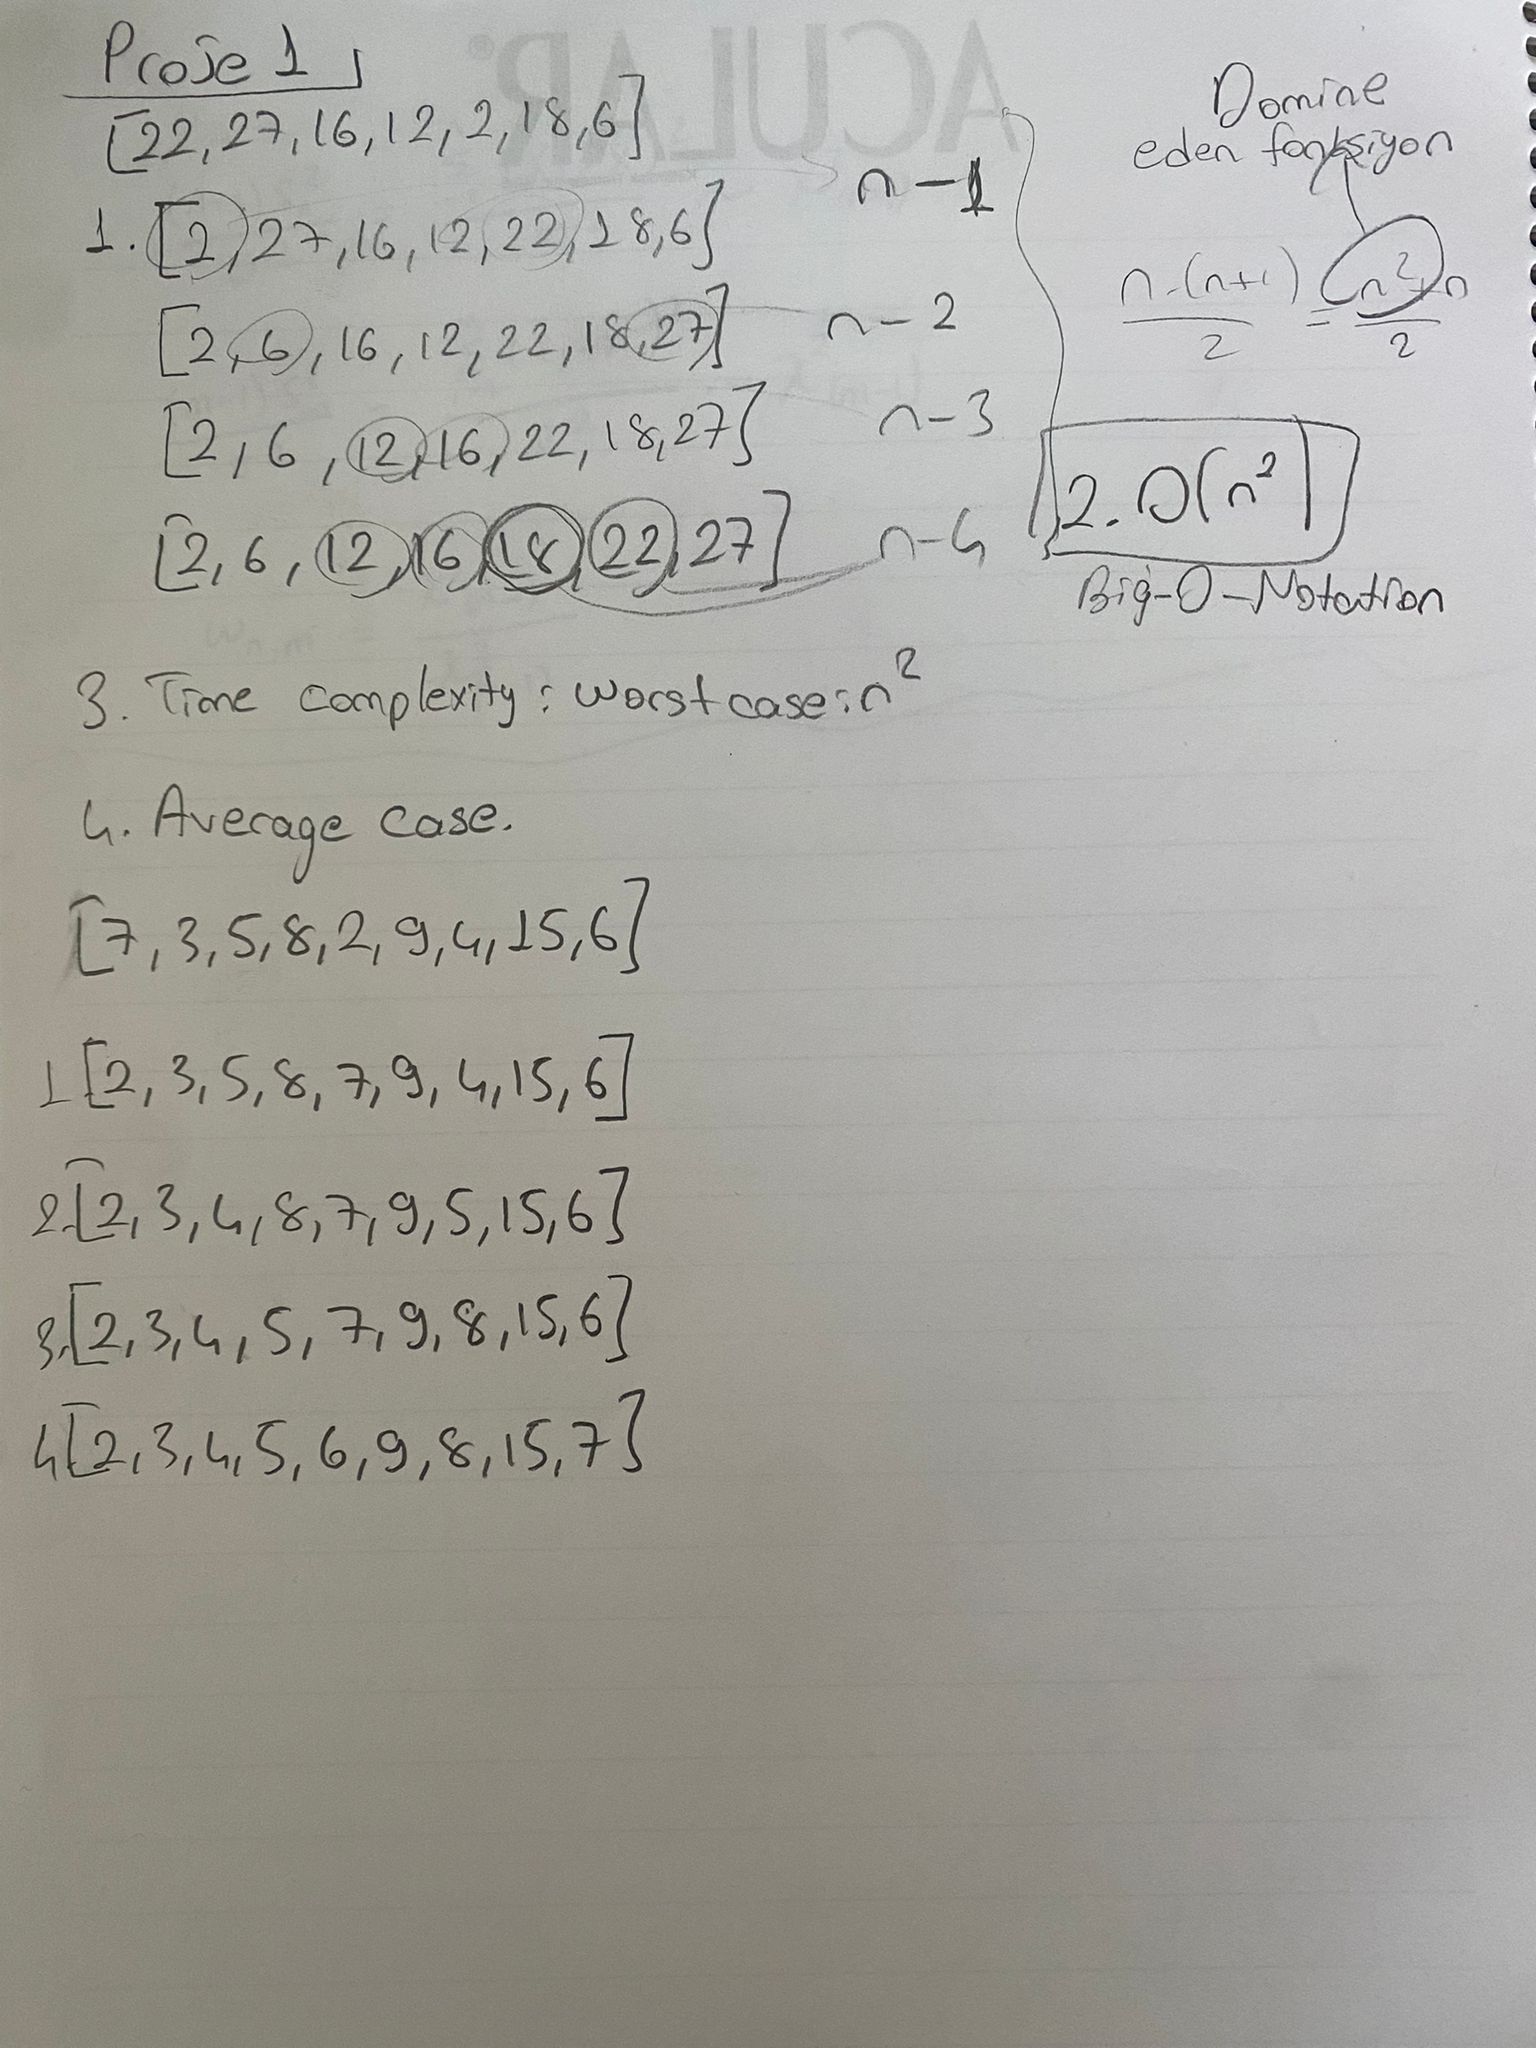 Proje 1
[22, 27, 16, 12, 2, 18, 6]
1. [2, 27, 16, 12, 22, 18, 6] n-1
[2, 6, 16, 12, 22, 18, 27] n-2
[2, 6, 12, 16, 22, 18, 27] n-3
[2, 6, 12, 16, 18, 22, 27] n-4
Domine
eden fonksiyon
n.(n+1)/2 = n²+n/2
2. O(n²)
Big-O-Notation
3. Time complexity: worst case: n²
4. Average case.
[7, 3, 5, 8, 2, 9, 4, 15, 6]
1 [2, 3, 5, 8, 7, 9, 4, 15, 6]
2. [2, 3, 4, 8, 7, 9, 5, 15, 6]
3. [2, 3, 4, 5, 7, 9, 8, 15, 6]
4 [2, 3, 4, 5, 6, 9, 8, 15, 7]
ACULAR®